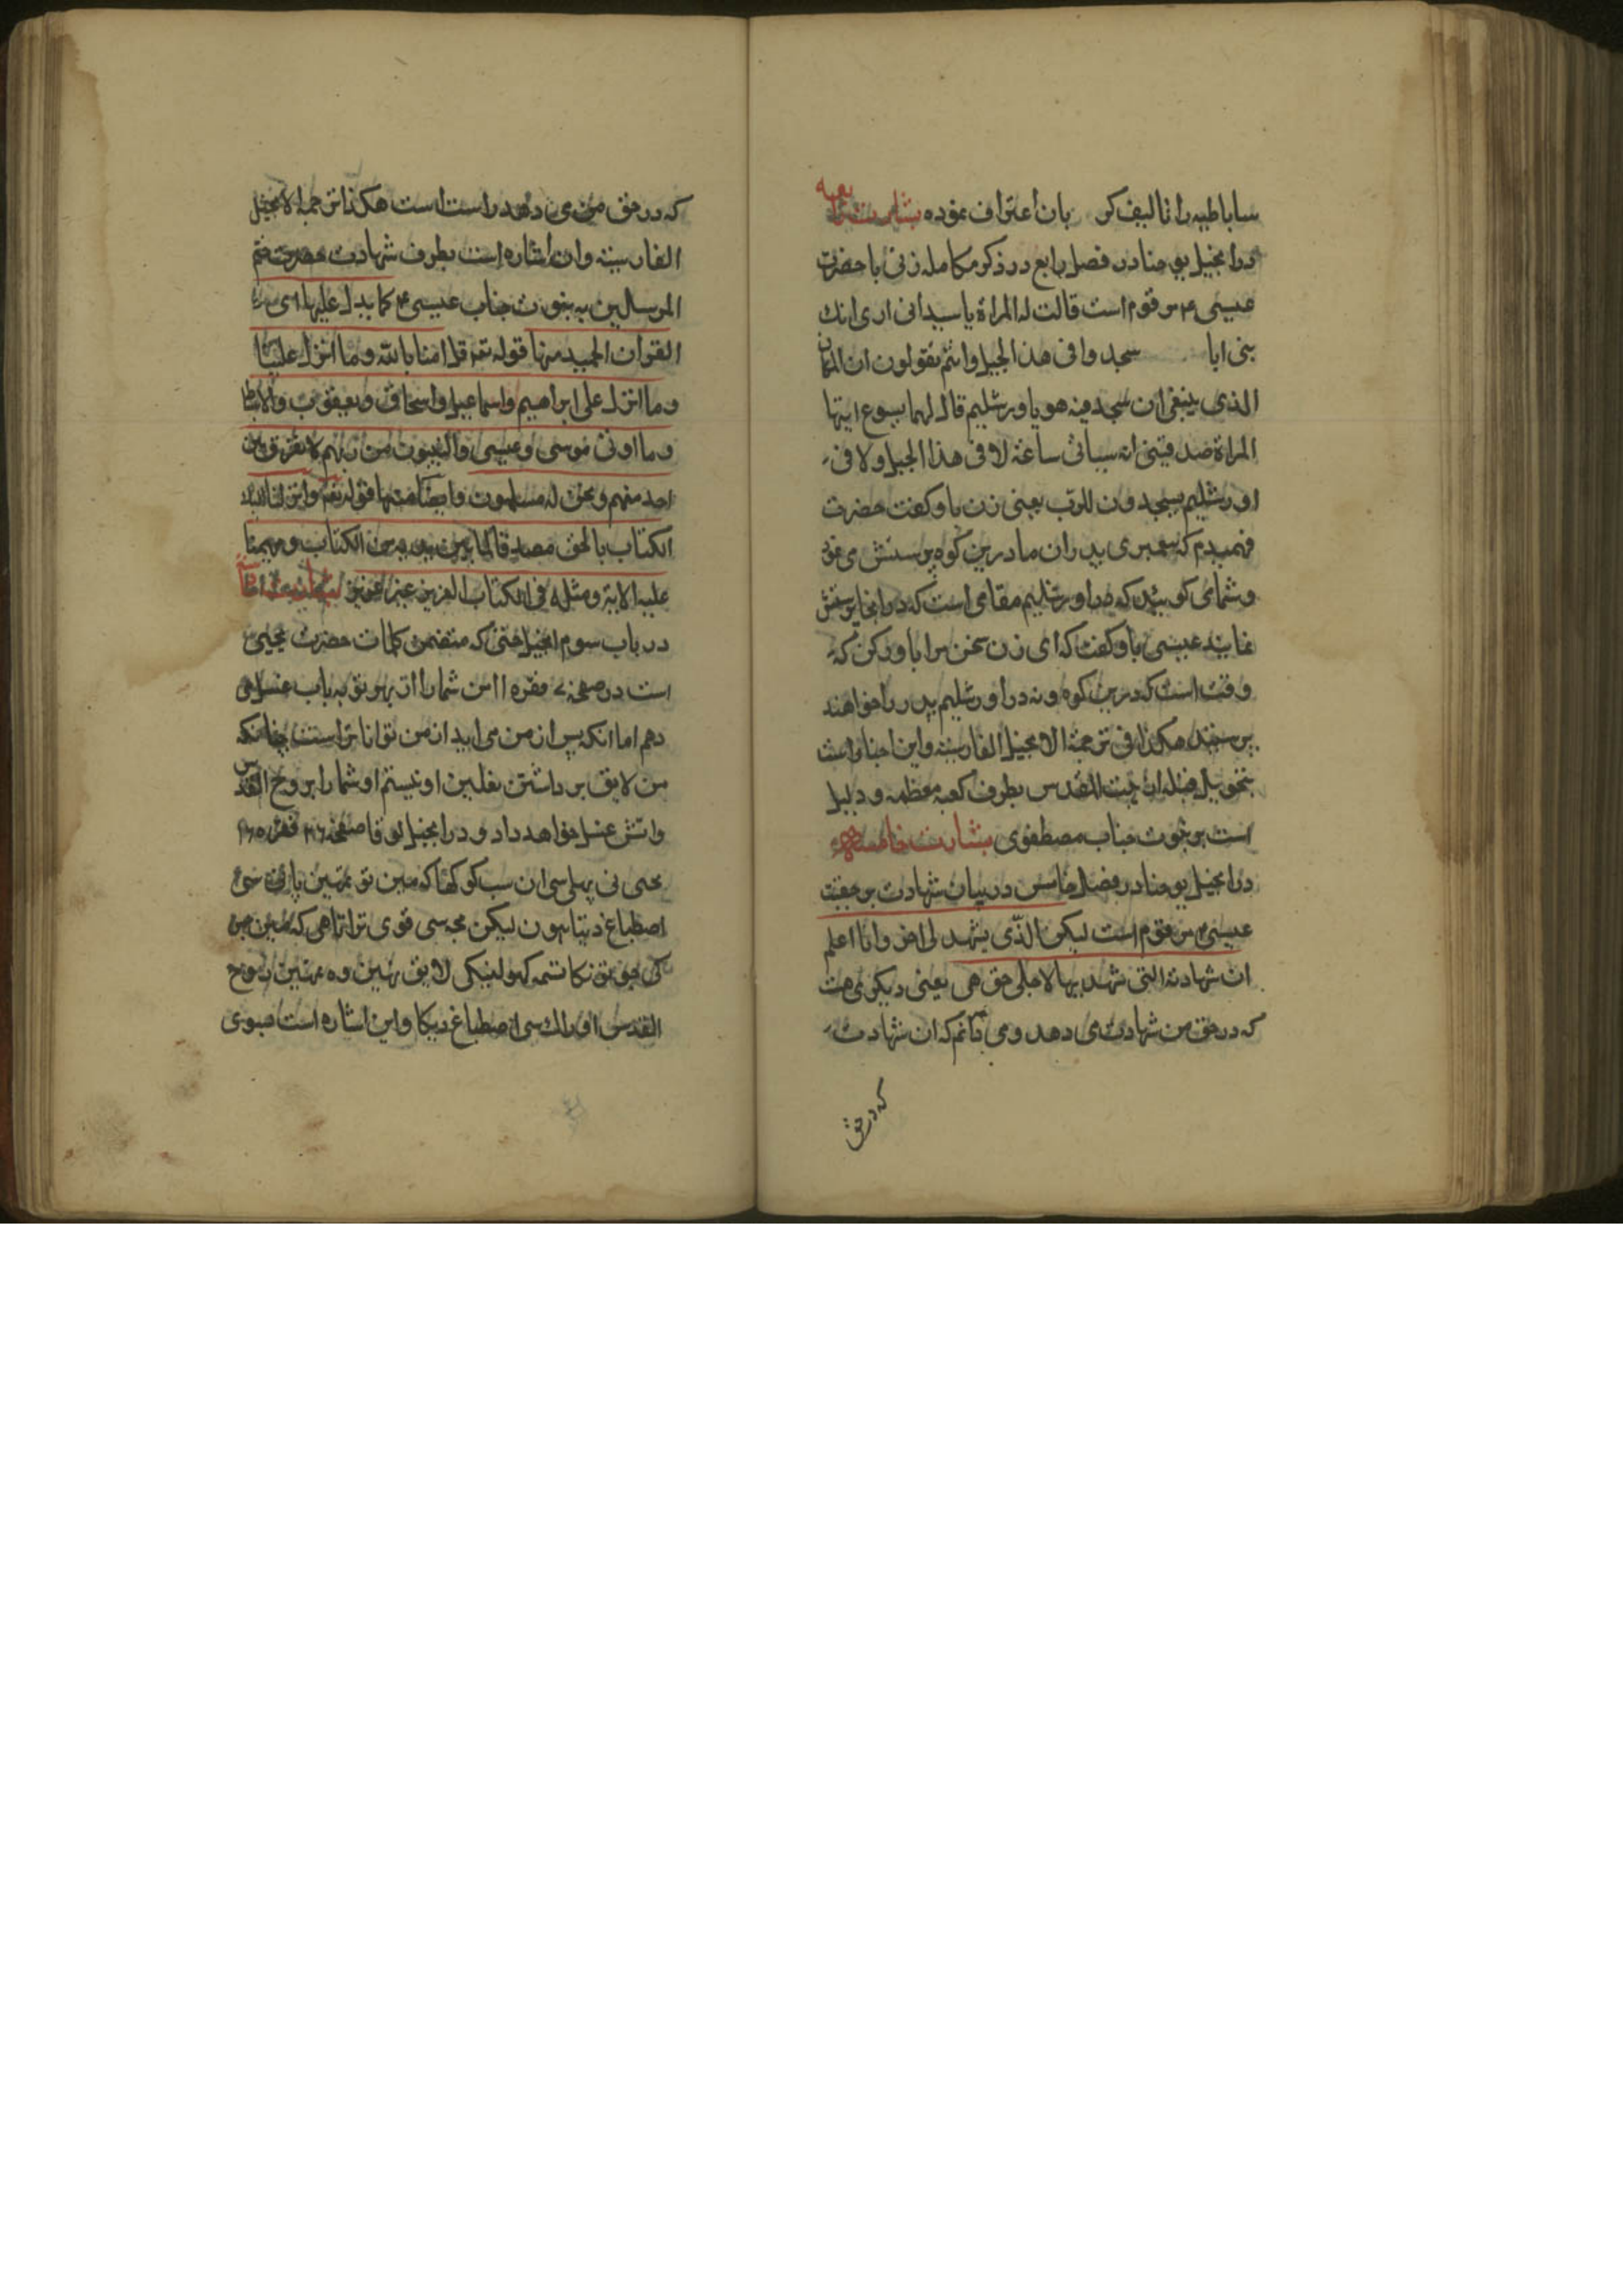 ساباطیه را تالیف کر بان اعتراف نموده بشارت رابعه
در انجیل یوحنا در فصل رابع در ذکر مکامله زنی با حضرت
عیسی ۴ مرقوم است قالت له المراة یا سیدانی اری انک
بنی ابا سجدوا فی هذا الجبل وانتم تقولون ان المکان
الذی ینبغی ان یسجد فیه هو یاورشلیم قال لهما یسوع ایتها
المراة صدقینی انه سیاتی ساعة لا فی هذا الجبل ولا فی
اورشلیم یسجدون للرب یعنی زن باو کفت حضرت
فهمیدم که پیغمبری پدران ما درین کوه پرستش می نمود
و شما می کویید که در اورشلیم مقامی است که در انجا پرستش
نمایند عیسی باو کفت که ای زن سخن مرا باور کن که
وقت است که درین کوه و نه در اورشلیم پدر را خواهند
پرستید هکذا فی ترجمة الانجیل الفارسیة واین اخبار است
بتحویل قبله از بیت المقدس بطرف کعبه معظمه و دلیل
است بر نبوت جناب مصطفوی بشارت خامسه
در انجیل یوحنا در فصل خامس در بیان شهادت بر حقیت
عیسی ۴ مرقوم است لیکن الذی یشهد لی اخر وانا اعلم
ان شهادته التی شهد بها لاجلی حق هی یعنی دیکری هست
که در حق من شهادت می دهد و می دانم که ان شهادت
که در حق
که در حق من می دهد راست است هکذا ترجمة الانجیل
الفارسیة وان اشاره است بطرف شهادت حضرت ختم
المرسلین به نبوت جناب عیسی ۴ کما یدل علیها ای
القران المجید منها قوله تعه قل امنا بالله وما انزل علینا
وما انزل علی ابراهیم واسماعیل واسحاق ویعقوب والاسباط
وما اوتی موسی وعیسی والنبیون من ربهم لا نفرق بین
احد منهم ونحن له مسلمون وایضا منها قوله تعه وانزلنا الیک
الکتاب بالحق مصدقا لما بین یدیه من الکتاب ومهیمنا
علیه الایة ومثله فی الکتاب العزیز غیر عزیز بشارت
در باب سوم انجیل متی که متضمن کلمات حضرت یحیی
است در صفحه ۷ فقره ۱۱ من شما را از بهر توبه باب غسل می
دهم اما انکه پس از من می اید از من تواناتر است چنانکه
من لایق برداشتن نعلین او نیستم او شما را بروح القدس
واتش غسل خواهد داد و در انجیل لوقا صفحه فقره
یحیی نی پهلی سی ان سب کو کها که مین تو تمهین پانی سی
اصطباغ دیتا هون لیکن مجه سی قوی تر اتا هی که مین جس
کی جوتونکا تسمه کهولنیکی لایق نهین وه تمهین روح
القدس اور اک سی اصطباغ دیکا واین اشاره است بسوی